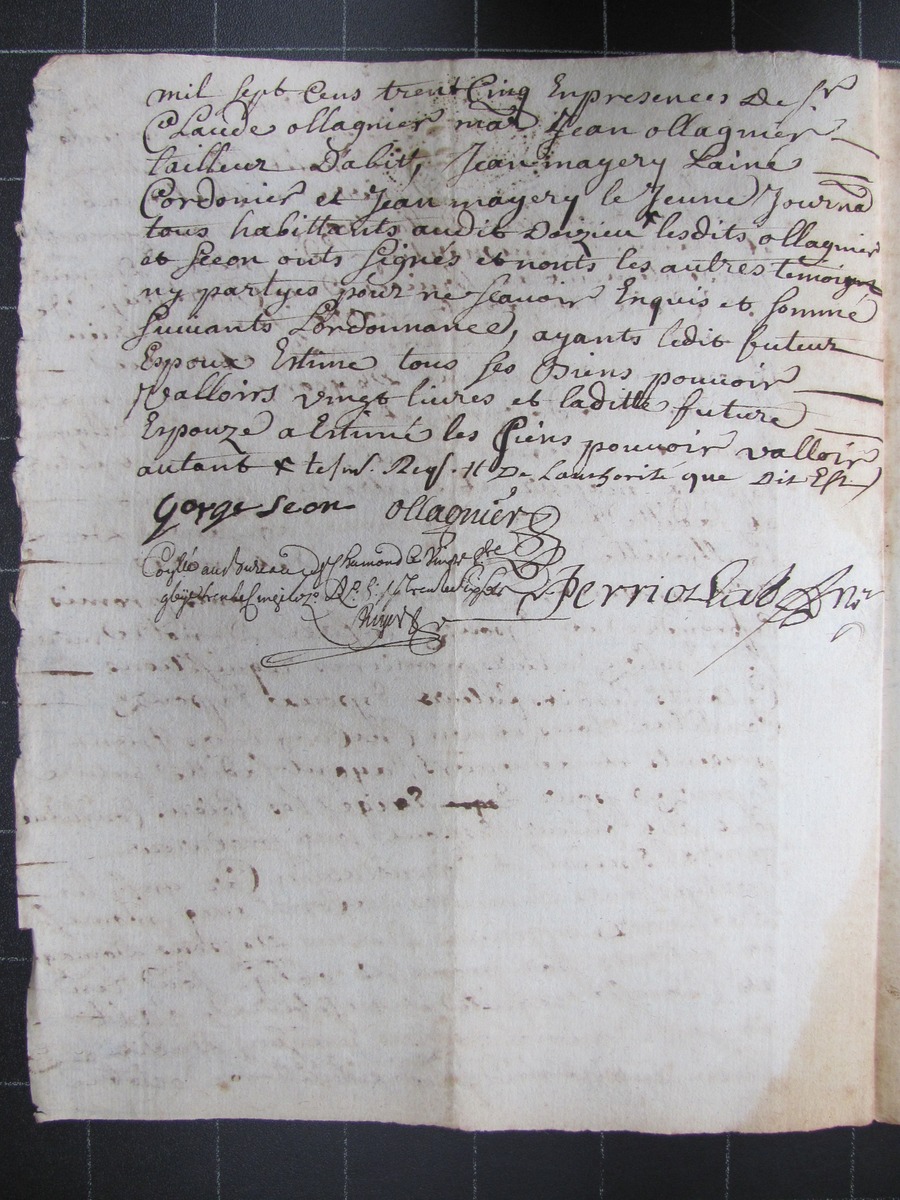 mil sept Cens trent Cinq Enpresences De Sr
Claude ollagnier mar. Jean ollagnier
tailleur Dabitt, Jean mayery Lainé
Cordonier et Jean mayery le Jeune Journa
tous habittants audit Doizieu * lesdits ollagnier
et Seeon onts Signés et nonts les autres temoigns
ny partyes pour ne scavoir Enquis et sommé
suivants Lordonnance, ayants ledit futeur
Espoux Estime tous ses Biens pouvoir
valloirs vingt livres et laditte future
Espouze a Estimé les siens pouvoir valloir
autant * De Lauthorité que Dit Est
Gorge Seon ollagnier
au Bureau De St chamond Le
Perriolat Nre